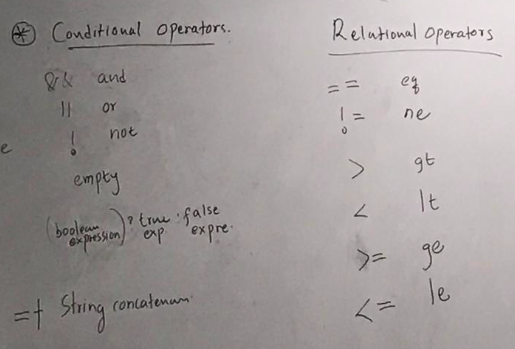 * Conditional Operators.
&& and
|| or
! not
e
empty
(boolean expression) ? true exp : false expre.
=+ String
Relational Operators
== eq
!= ne
> gt
< lt
>= ge
<= le